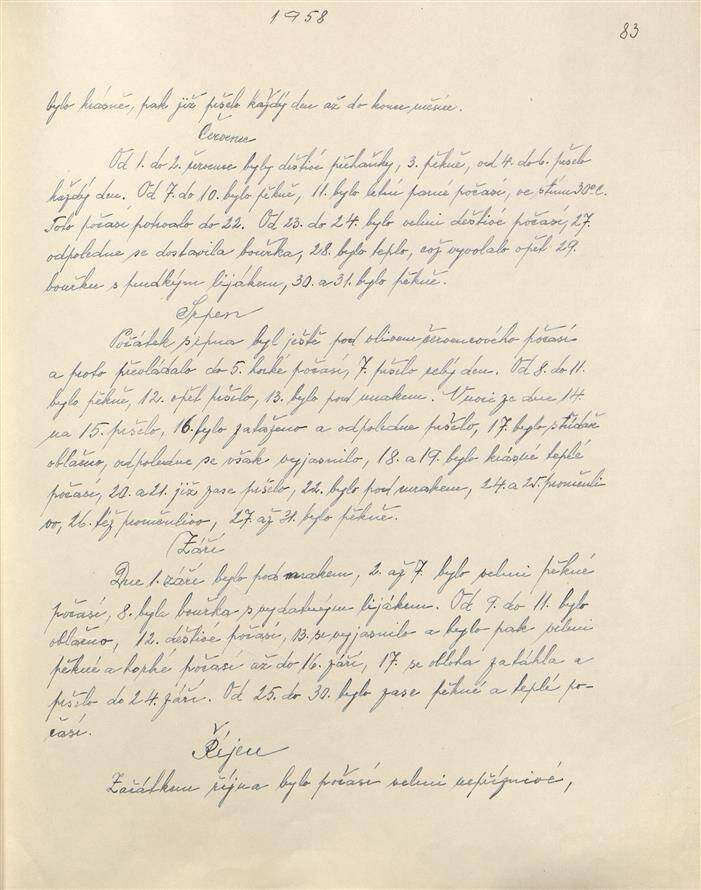 1958
83
bylo krásně, pak již pršelo každý den až do konce měsíce.
Červenec
Od 1. do 2. července byly deštivé přeháňky, 3. pěkně, od 4. do 6. pršelo
každý den. Od 7. do 10. bylo pěkně, 11. bylo letní parné počasí, ve stínu 30°C.
Toto počasí potrvalo do 22. Od 23. do 24. bylo velmi deštivé počasí, 27.
odpoledne se dostavila bouřka, 28. bylo teplo, což vyvolalo opět 29.
bouřku s prudkým lijákem, 30. a 31. bylo pěkně.
Srpen
Počátek srpna byl ještě pod vlivem červencového počasí
a proto převládalo do 5. horké počasí, 7. pršelo celý den. Od 8. do 11.
bylo pěkně, 12. opět pršelo, 13. bylo pod mrakem. V noci ze dne 14.
na 15. pršelo, 16. bylo zataženo a odpoledne pršelo, 17. bylo střídavě
oblačno, odpoledne se však vyjasnilo, 18. a 19. bylo krásné teplé
počasí, 20. a 21. již zase pršelo, 22. bylo pod mrakem, 24. a 25. proměnli
vo, 26. též proměnlivo, 27. až 31. bylo pěkně.
Září
Dne 1. září bylo pod mrakem, 2. až 7. bylo velmi pěkné
počasí, 8. byla bouřka s vydatným lijákem. Od 9. do 11. bylo
oblačno, 12. deštivé počasí, 13. se vyjasnilo a bylo pak velmi
pěkné a horké počasí až do 16. září, 17. se obloha zatáhla a
pršelo do 24. září. Od 25. do 30. bylo zase pěkné a teplé po-
časí.
Říjen
Začátkem října bylo počasí velmi nepříznivé,